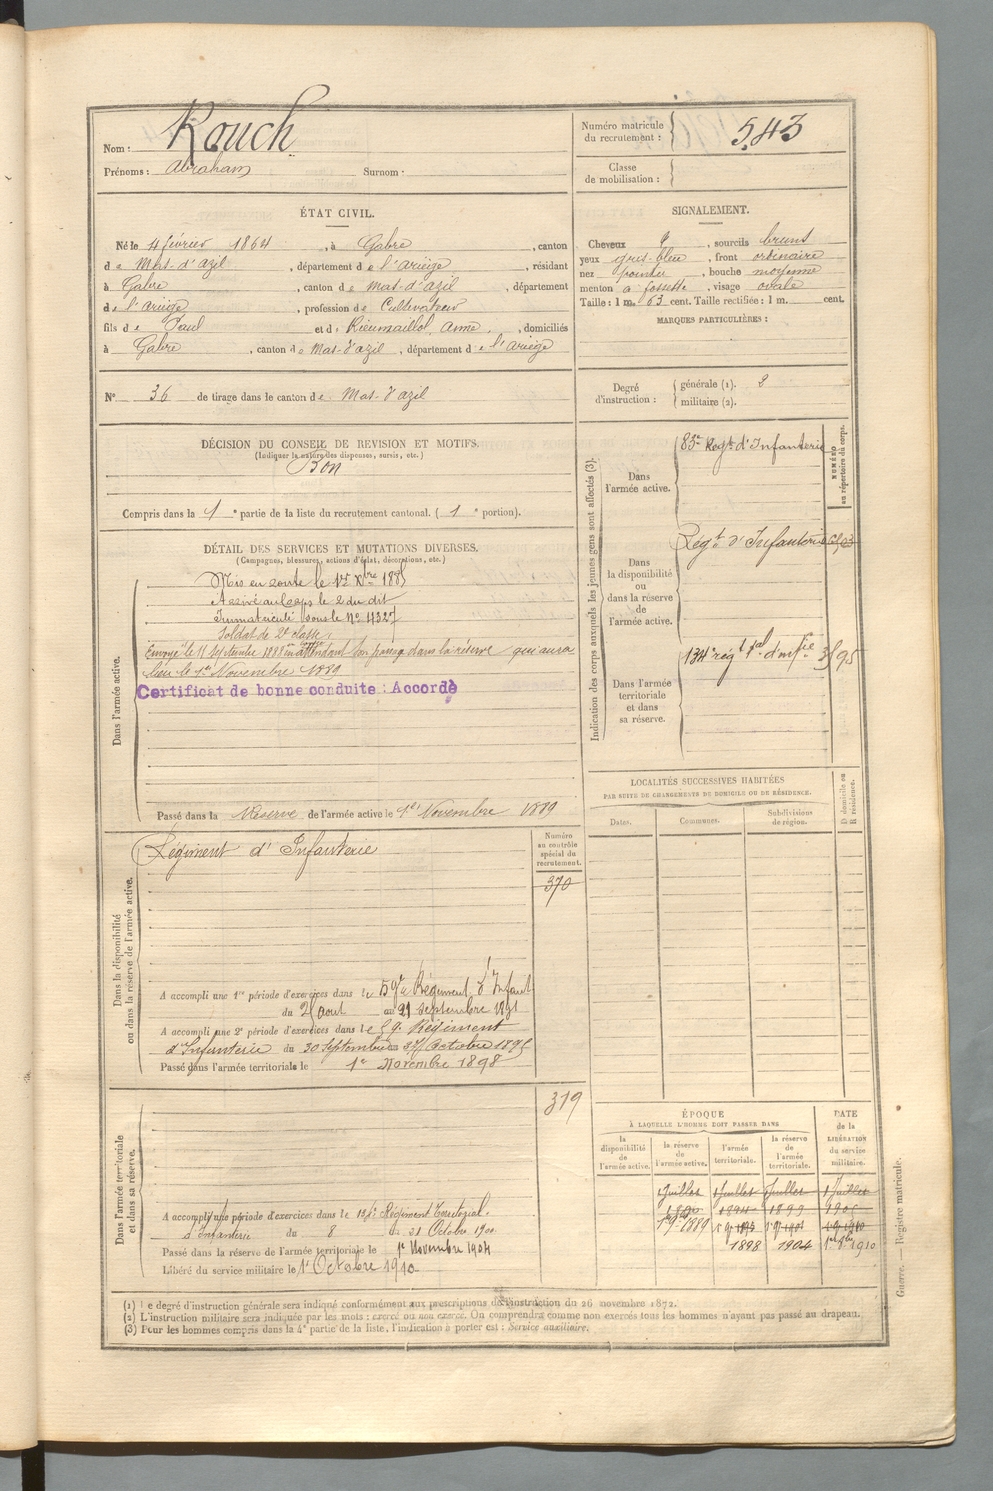 Nom : Rouch
Prénoms : Abraham Surnom :
Numéro matricule du recrutement : 543
Classe de mobilisation :
ÉTAT CIVIL.
Né le 4 février 1864, à Gabre, canton
de Mas-d'azil, département de l'ariège, résidant
à Gabre, canton de Mas-d'azil, département
de l'ariège, profession de Cultivateur
fils de Paul et de Rieumaillol, Anne, domiciliés
à Gabre, canton de Mas-d'azil, département de l'ariège
SIGNALEMENT.
Cheveux, sourcils bruns
yeux gris-bleu, front ordinaire
nez pointu, bouche moyenne
menton à fossette, visage ovale
Taille : 1 m. 63 cent. Taille rectifiée : 1 m. cent.
MARQUES PARTICULIÈRES :
N° 36 de tirage dans le canton de Mas-d'azil
Degré d'instruction : générale (1). 3
militaire (2).
DÉCISION DU CONSEIL DE REVISION ET MOTIFS.
(Indiquer la nature des dispenses, sursis, etc.)
Bon
Compris dans la 1e partie de la liste du recrutement cantonal. (1e portion).
DÉTAIL DES SERVICES ET MUTATIONS DIVERSES.
(Campagnes, blessures, actions d'éclat, décorations, etc.)
Dans l'armée active.
Mis en route le 1er Xbre 1885
Arrivé au Corps le 2 du dit
Immatriculé sous le No 4327
Soldat de 2e classe
Envoyé le 11 septembre 1888 en attendant son passage dans la réserve qui aura
lieu le 1er Novembre 1889
Certificat de bonne conduite : Accordé
Passé dans la Réserve de l'armée active le 1er Novembre 1889
Indication des corps auxquels les jeunes gens sont affectés (3).
NUMÉRO au répertoire du corps.
Dans l'armée active.
83e Regt d'Infanterie
Dans la disponibilité ou dans la réserve de l'armée active.
Régt d'Infanterie
Dans l'armée territoriale et dans sa réserve.
134e régt tal d'infie
LOCALITÉS SUCCESSIVES HABITÉES
PAR SUITE DE CHANGEMENTS DE DOMICILE OU DE RÉSIDENCE.
Dates. Communes. Subdivisions de région. D domicile ou R résidence.
Dans la disponibilité ou dans la réserve de l'armée active.
Régiment d'Infanterie
Numéro au contrôle spécial du recrutement.
370
A accompli une 1re période d'exercices dans le 59e Régiment d'Infant
du 2 août au 21 septembre 1891
A accompli une 2e période d'exercices dans le 59e Régiment
d'Infanterie du 30 Septembre au 27 Octobre 1895
Passé dans l'armée territoriale le 1er Novembre 1898
319
Dans l'armée territoriale et dans sa réserve.
A accompli une période d'exercices dans le 134e Régiment Territorial
d'Infanterie du 8 au 21 Octobre 1900
Passé dans la réserve de l'armée territoriale le 1er Novembre 1904
Libéré du service militaire le 1er Octobre 1910.
ÉPOQUE
À LAQUELLE L'HOMME DOIT PASSER DANS
la disponibilité de l'armée active. la réserve de l'armée active. l'armée territoriale. la réserve de l'armée territoriale.
DATE de la LIBÉRATION du service militaire.
Juillet Juillet Juillet Juillet
1890 1894 1899 1905
1889
1898 1904 1910
(1) Le degré d'instruction générale sera indiqué conformément aux prescriptions de l'instruction du 26 novembre 1872.
(2) L'instruction militaire sera indiquée par les mots : exercé ou non exercé. On comprendra comme non exercés tous les hommes n'ayant pas passé au drapeau.
(3) Pour les hommes compris dans la 4e partie de la liste, l'indication à porter est : Service auxiliaire.
Guerre. — Registre matricule.